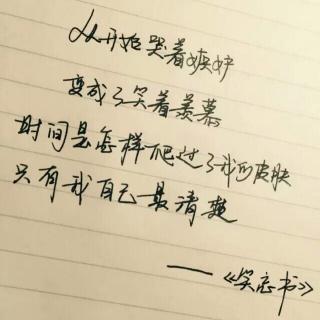 从开始哭着嫉妒
变成了笑着羡慕
时间是怎样爬过了我的皮肤
只有我自己最清楚
——《笑忘书》